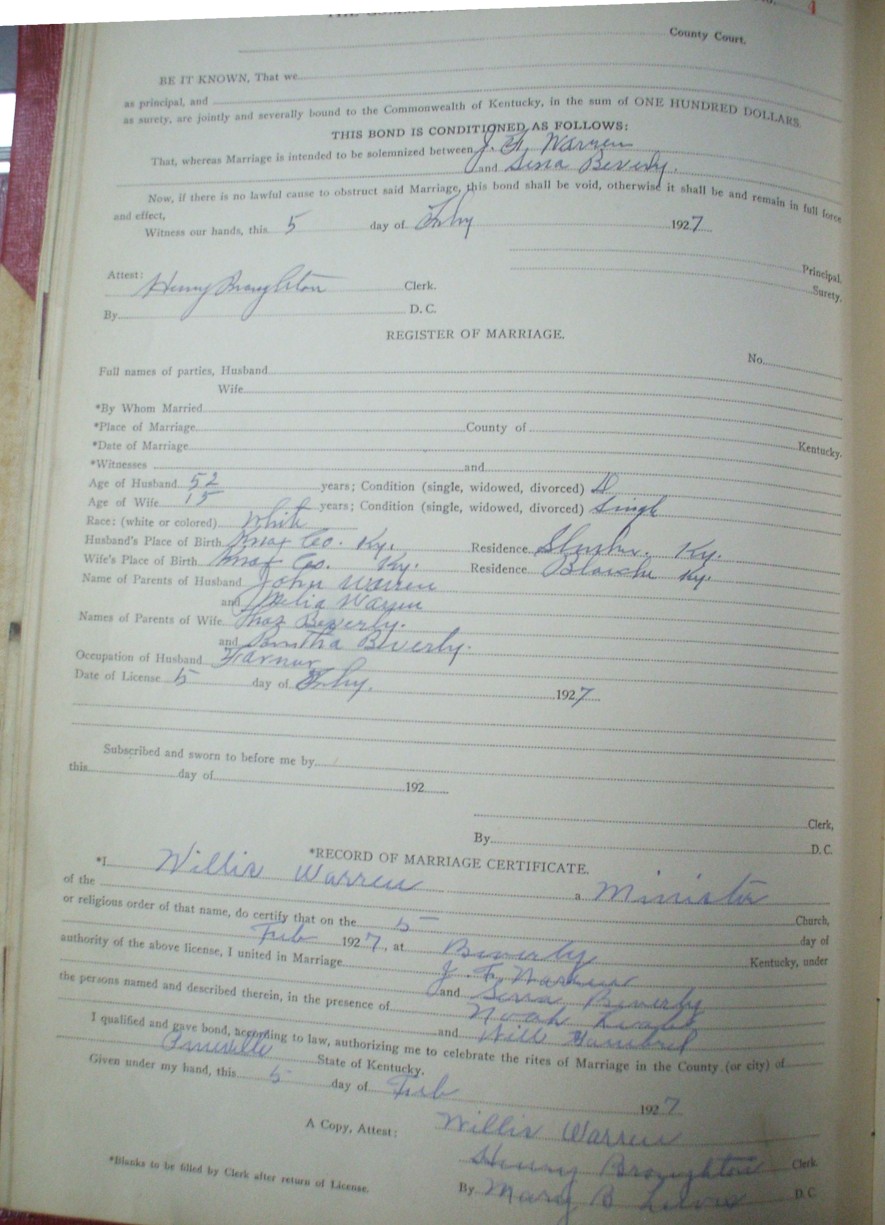 4
County Court.
BE IT KNOWN, That we
as principal, and
as surety, are jointly and severally bound to the Commonwealth of Kentucky, in the sum of ONE HUNDRED DOLLARS.
THIS BOND IS CONDITIONED AS FOLLOWS:
That, whereas Marriage is intended to be solemnized between J. F. Warren
and Sena Beverly.
Now, if there is no lawful cause to obstruct said Marriage, this bond shall be void, otherwise it shall be and remain in full force
and effect,
Witness our hands, this 5 day of 1927
Principal.
Surety.
Attest:
Henry Broughton Clerk.
By D. C.
REGISTER OF MARRIAGE.
No.
Full names of parties, Husband
Wife
*By Whom Married
*Place of Marriage County of Kentucky.
*Date of Marriage
*Witnesses and
Age of Husband 52 years; Condition (single, widowed, divorced) D
Age of Wife 15 years; Condition (single, widowed, divorced) Single
Race: (white or colored) White
Husband's Place of Birth Knox Co. Ky. Residence Ky.
Wife's Place of Birth Knox Co. Ky. Residence Blanche Ky.
Name of Parents of Husband John Warren
and Warren
Names of Parents of Wife Thos Beverly.
and Beverly.
Occupation of Husband Farmer
Date of License 5 day of 1927
Subscribed and sworn to before me by
this day of 192
Clerk,
By D. C.
*RECORD OF MARRIAGE CERTIFICATE.
*I Willis Warren a Minister
of the Church,
or religious order of that name, do certify that on the 5 day of
Feb 1927, at Beverly Kentucky, under
authority of the above license, I united in Marriage J. F. Warren
and Sena Beverly
the persons named and described therein, in the presence of Noah
and Will
I qualified and gave bond, according to law, authorizing me to celebrate the rites of Marriage in the County (or city) of
Pineville State of Kentucky.
Given under my hand, this 5 day of Feb 1927
Willis Warren
A Copy, Attest:
Henry Broughton Clerk
By Mary B Lewis D. C
*Blanks to be filled by Clerk after return of License.